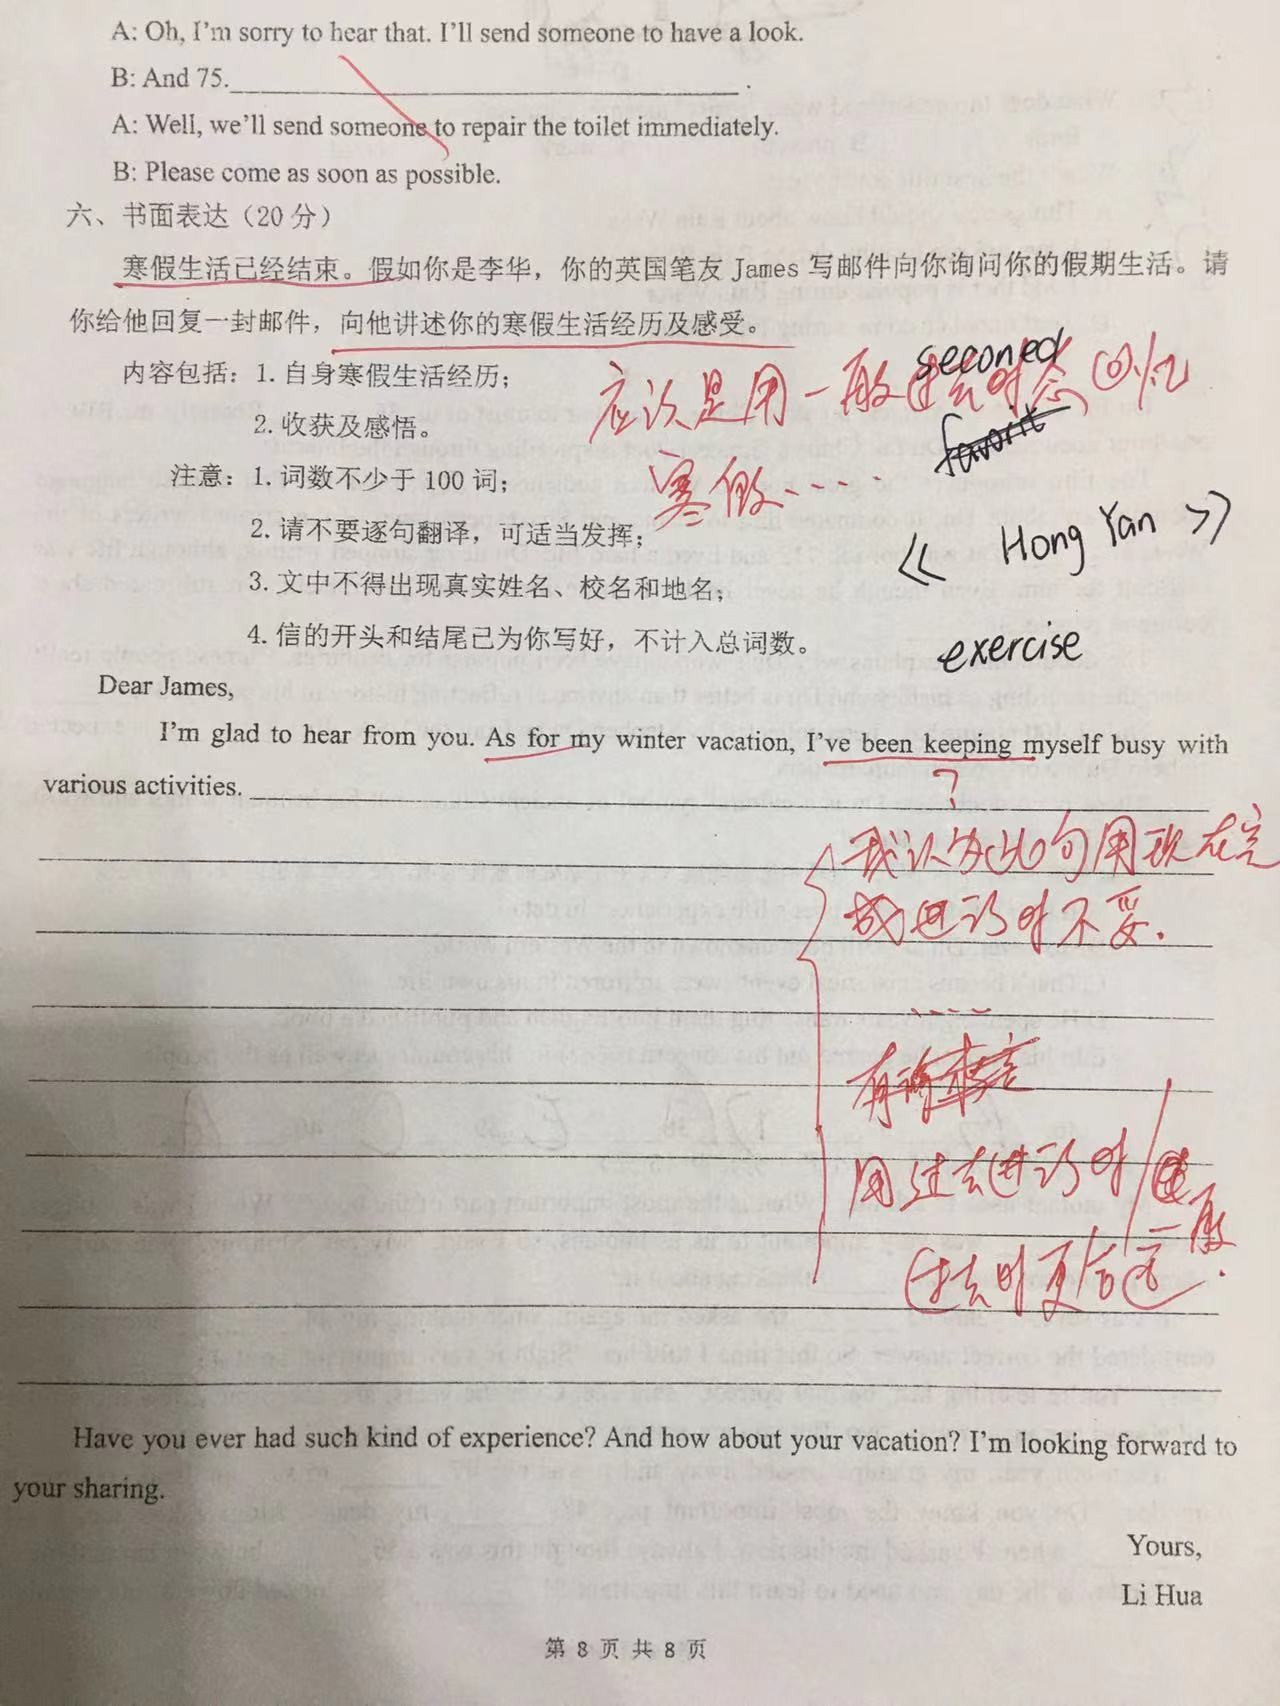 A: Oh, I'm sorry to hear that. I'll send someone to have a look.
B: And 75.______________________________.
A: Well, we'll send someone to repair the toilet immediately.
B: Please come as soon as possible.
六、书面表达（20 分）
寒假生活已经结束。假如你是李华，你的英国笔友 James 写邮件向你询问你的假期生活。请
你给他回复一封邮件，向他讲述你的寒假生活经历及感受。
内容包括：1. 自身寒假生活经历；
seconed
应该是用一般过去时态回忆
2. 收获及感悟。
favorit
寒假.....
注意：1. 词数不少于 100 词；
2. 请不要逐句翻译，可适当发挥；
《 Hong Yan 》
3. 文中不得出现真实姓名、校名和地名；
4. 信的开头和结尾已为你写好，不计入总词数。
exercise
Dear James,
I'm glad to hear from you. As for my winter vacation, I've been keeping myself busy with
various activities.
?
我认为此句用现在完
成进行时不妥.
.....
用过去进行时/一般
过去时更合适.
Have you ever had such kind of experience? And how about your vacation? I'm looking forward to
your sharing.
Yours,
Li Hua
第 8 页 共 8 页